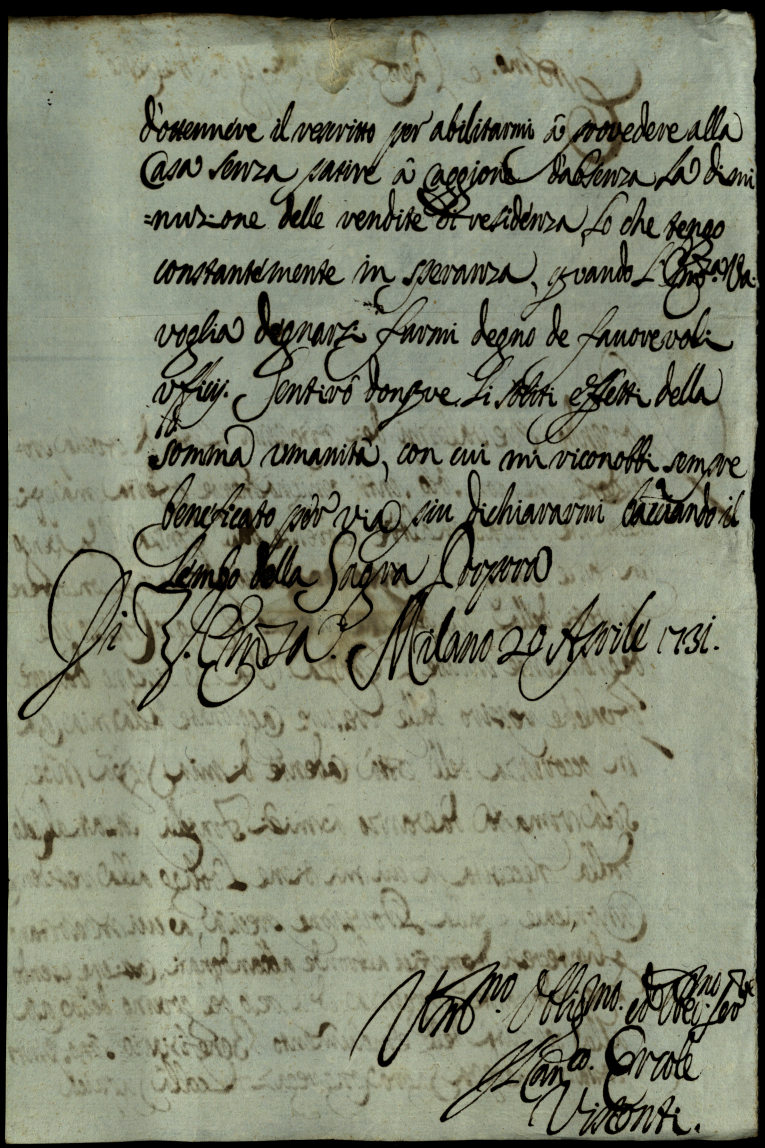 d'ottennere il rescritto per abilitarmi â provedere alla
Casa senza patire â caggione d'absenza La dimi
=nuzione delle vendite di residenza, Lo che tengo
constantemente in speranza, quando L'Emza. Va.
voglia degnarsi farmi degno de favorevoli
Vfficij. Sentirô donque Li soliti effetti della
somma vmanitâ, con cui mi riconobbi sempre
beneficato per via piu dichiararmi bacciando il
Lembo della Sagra Porpora
Di V. Emza. Milano 29 Aprile 1731.
Vmmo. Obligmo. ed Obbmo. Serre
Canco. Ercole
Visconti.